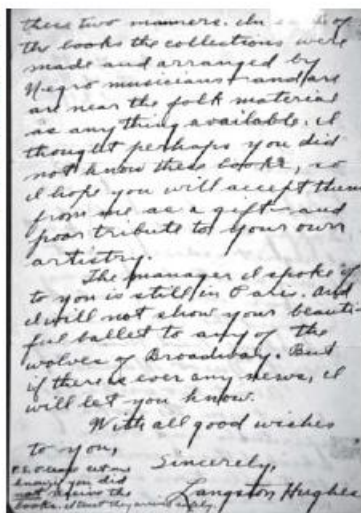 these two manners. In each of
the books the collections were
made and arranged by
Negro musicians and are
as near the folk material
as anything available. I
thought perhaps you did
not know these books, so
I hope you will accept them
from me as a gift and
poor tribute to your own
artistry.
The manager I spoke of
to you is still in Paris. And
I will not show your beauti-
ful ballet to any of the
wolves of Broadway. But
if there is ever any news, I
will let you know.
With all good wishes
to you,
Sincerely,
Langston Hughes
P.S. Please let me
know if you did
not receive the
books. I trust they arrive safely.